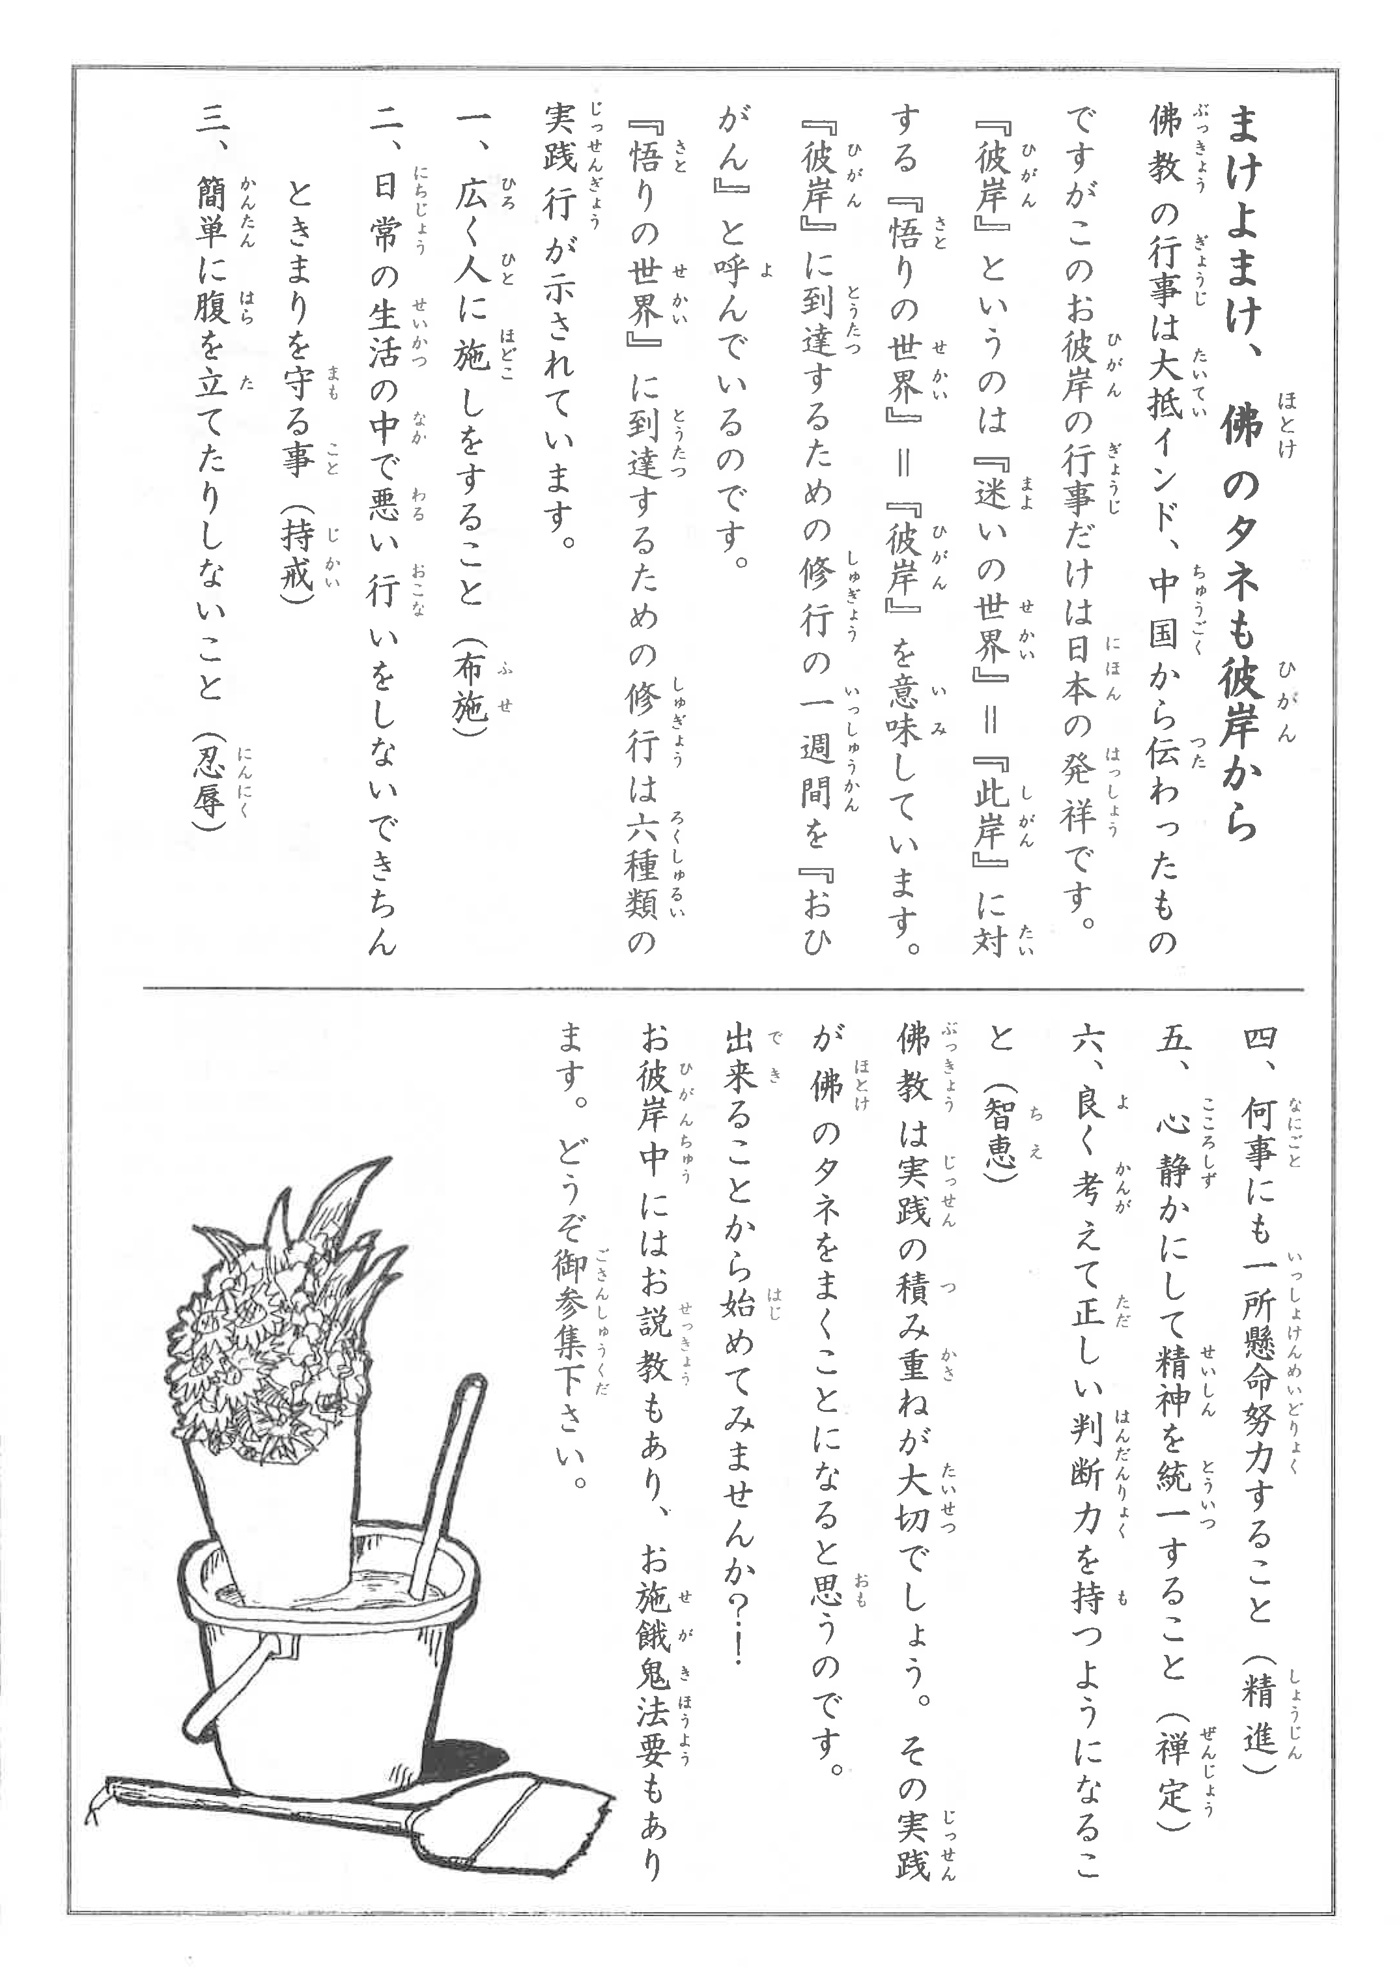 まけよまけ、佛のタネも彼岸から
佛教の行事は大抵インド、中国から伝わったもの
ですがこのお彼岸の行事だけは日本の発祥です。
『彼岸』というのは『迷いの世界』＝『此岸』に対
する『悟りの世界』＝『彼岸』を意味しています。
『彼岸』に到達するための修行の一週間を『おひ
がん』と呼んでいるのです。
『悟りの世界』に到達するための修行は六種類の
実践行が示されています。
一、広く人に施しをすること（布施）
二、日常の生活の中で悪い行いをしないできちん
ときまりを守る事（持戒）
三、簡単に腹を立てたりしないこと（忍辱）
四、何事にも一所懸命努力すること（精進）
五、心静かにして精神を統一すること（禅定）
六、良く考えて正しい判断力を持つようになるこ
と（智恵）
佛教は実践の積み重ねが大切でしょう。その実践
が佛のタネをまくことになると思うのです。
出来ることから始めてみませんか？！
お彼岸中にはお説教もあり、お施餓鬼法要もあり
ます。どうぞ御参集下さい。